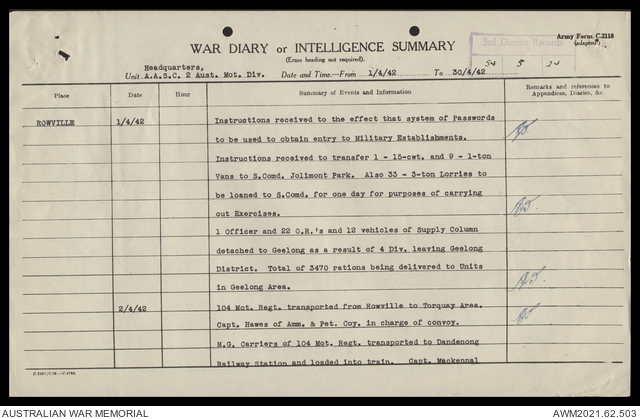 Army Form C.2118
(adapted)
3rd District Records
54 5 24
WAR DIARY or INTELLIGENCE SUMMARY
(Erase heading not required).
Headquarters,
Unit A.A.S.C. 2 Aust. Mot. Div. Date and Time—From 1/4/42 To 30/4/42
Place Date Hour Summary of Events and Information Remarks and references to Appendices, Diaries, &c.
ROWVILLE 1/4/42 Instructions received to the effect that system of Passwords
to be used to obtain entry to Military Establishments.
Instructions received to transfer 1 - 15-cwt. and 9 - 1-ton
Vans to S.Comd. Jolimont Park. Also 33 - 3-ton Lorries to
be loaned to S.Comd. for one day for purposes of carrying
out Exercises.
1 Officer and 22 O.R.'s and 12 vehicles of Supply Column
detached to Geelong as a result of 4 Div. leaving Geelong
District. Total of 3470 rations being delivered to Units
in Geelong Area.
2/4/42 104 Mot. Regt. transported from Rowville to Torquay Area.
Capt. Hawes of Amm. & Pet. Coy. in charge of convoy.
M.G. Carriers of 104 Mot. Regt. transported to Dandenong
Railway Station and loaded into train. Capt. Mackennal
AUSTRALIAN WAR MEMORIAL AWM2021.62.503